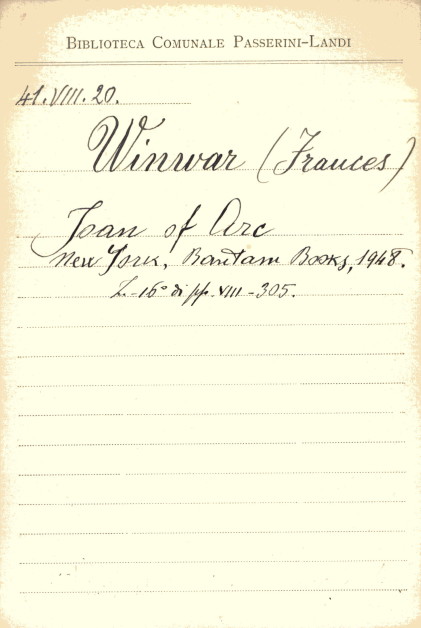 BIBLIOTECA COMUNALE PASSERINI-LANDI
41.VIII.20.
Winwar (Frances)
Joan of Arc
New York, Bantam Books, 1948.
-16° di pp. VIII - 305.